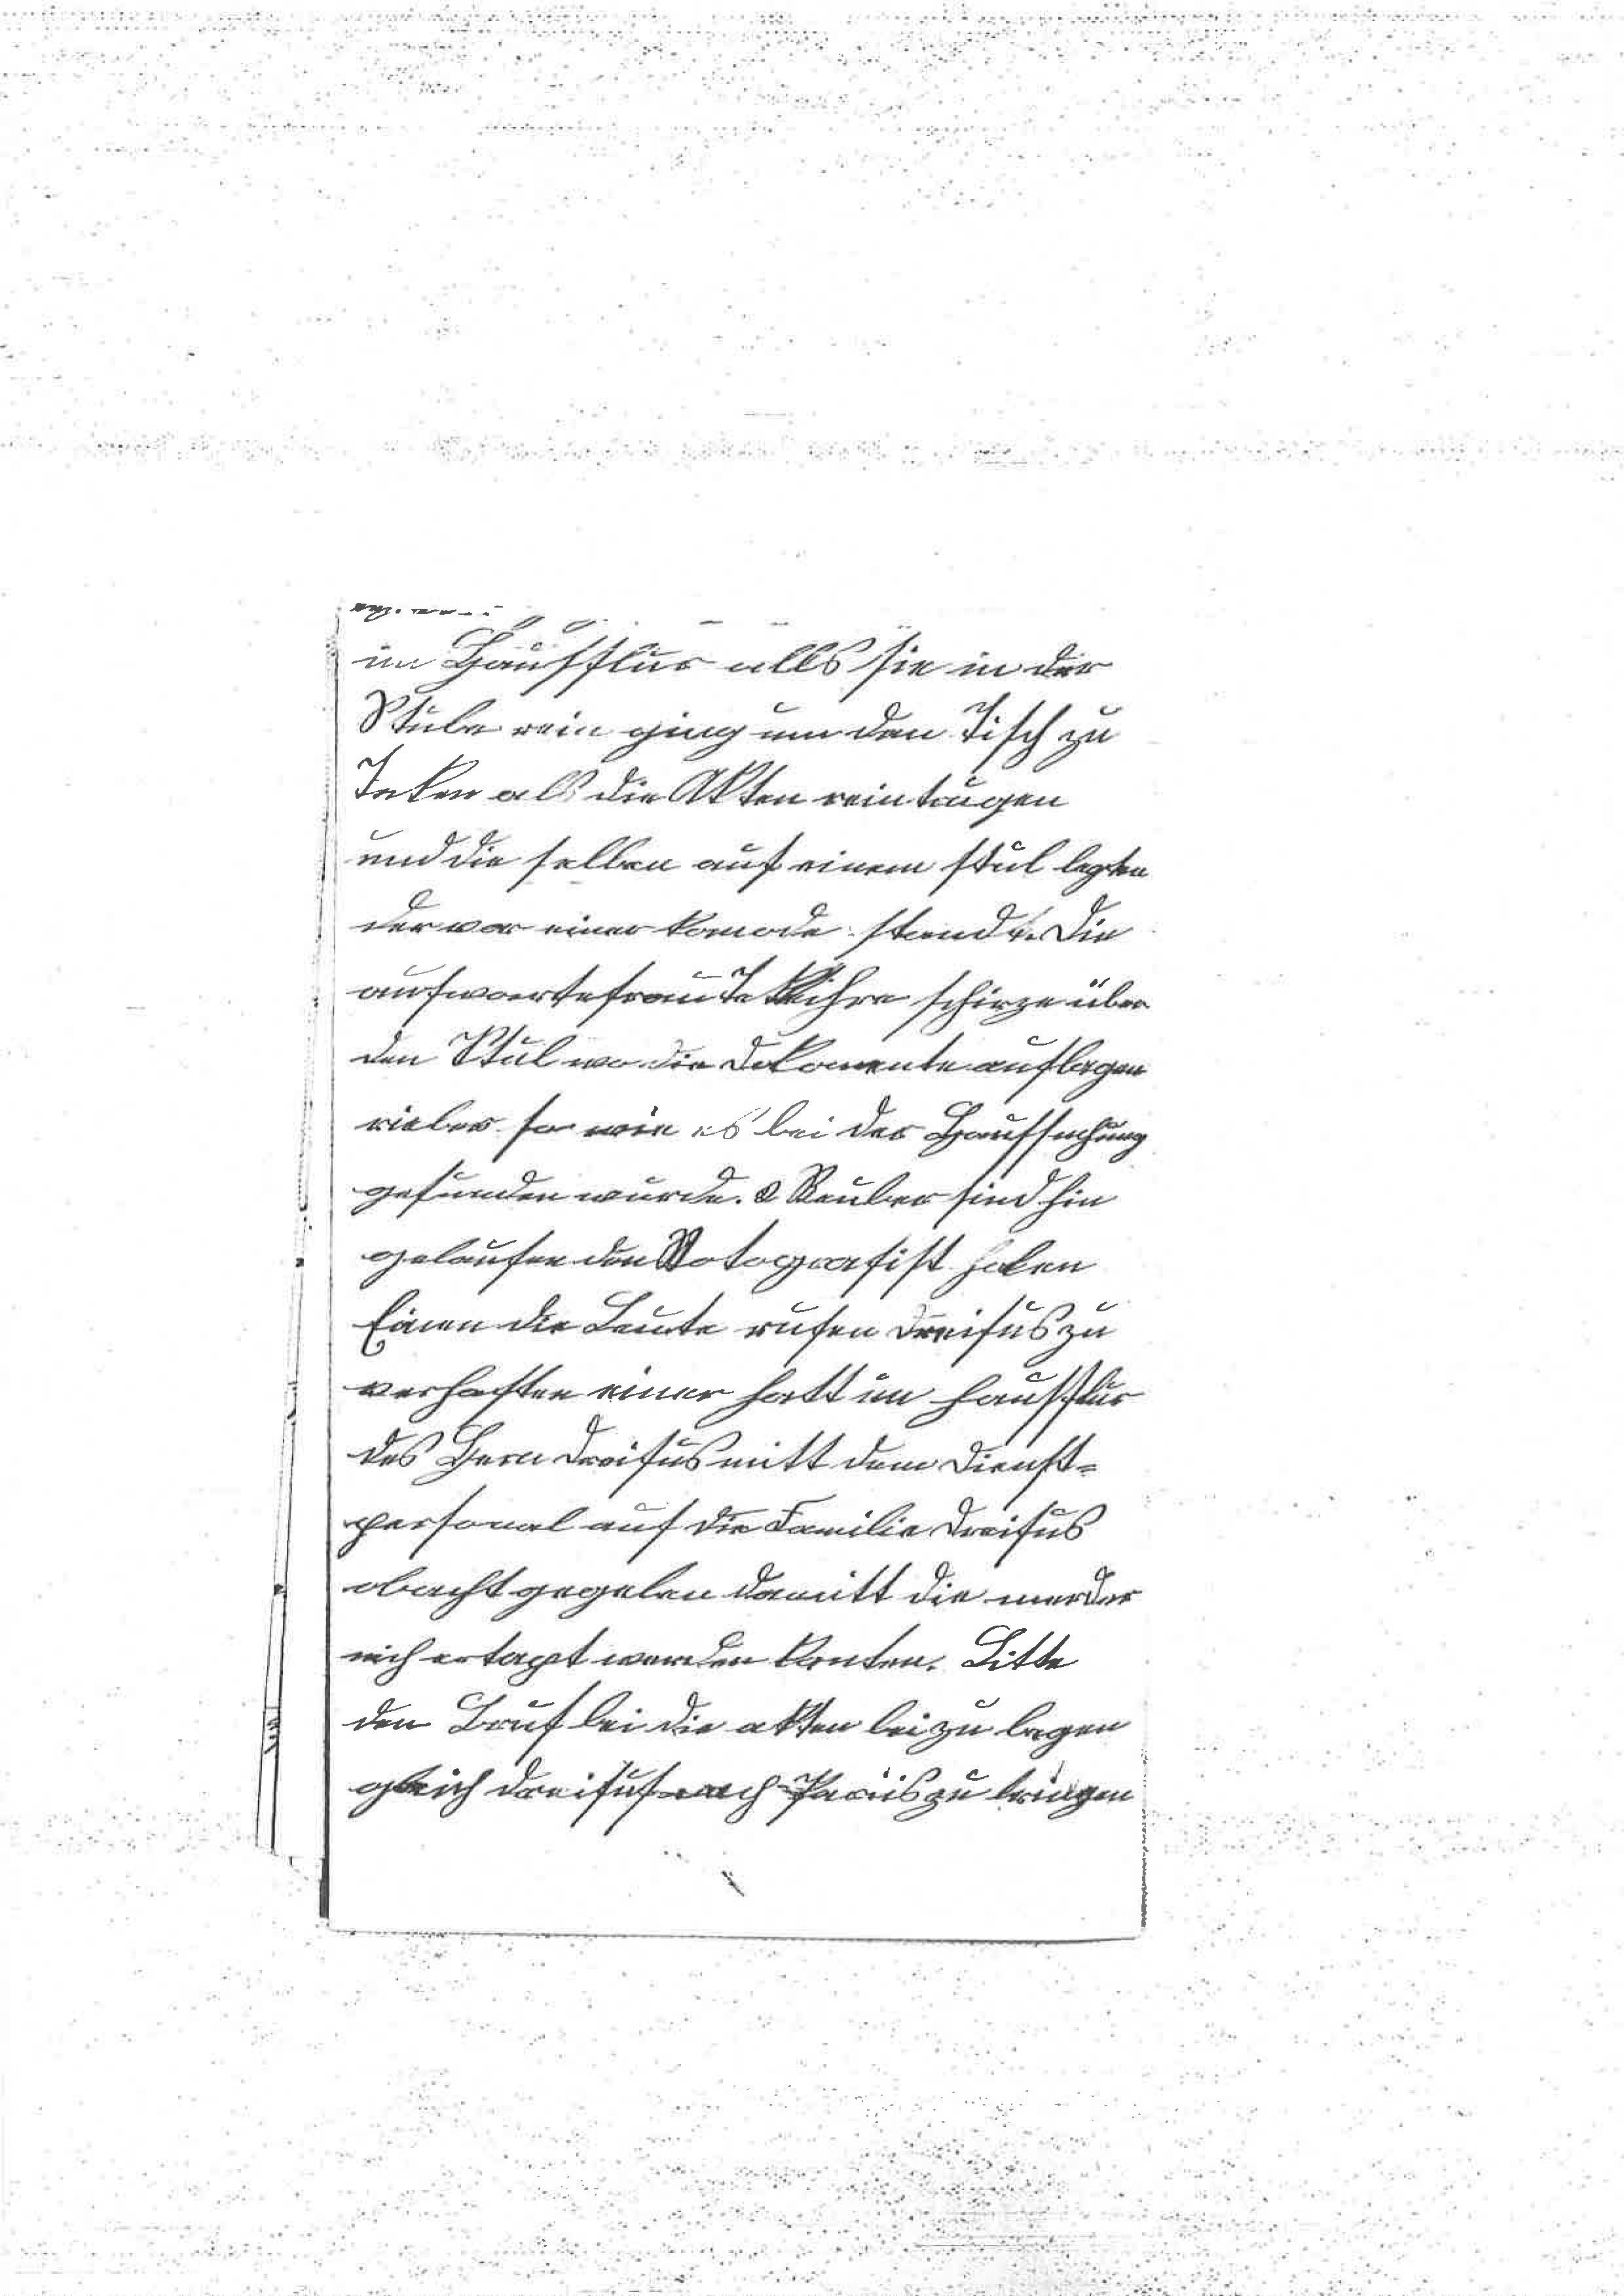 im Hausflur alls sie in der
Stube rein ging um den Tisch zu
deken als die Akten reintrugen
und die selben auf einem stul legten
der vor einer komode standt. Die
aufwartefrau dekt ihre schirze über
den Stul wo die Dokomente auflagen
rieber so wie es bei der Haussuchung
gefunden wurde. 2 Reuber sind hin
gelaufen den Fotografist holen
Einen die Leute rufen Dreifus zu
verhaften einer hatt im hausflur
des Hern Dreifus mitt dem Dienst-
personal auf die Familie Dreifus
obacht gegeben damitt die merder
nich ertapt werden konten. Bitte
den Bruf bei die akten bei zu legen
gleich Dreifus nach Pariis zu bringen